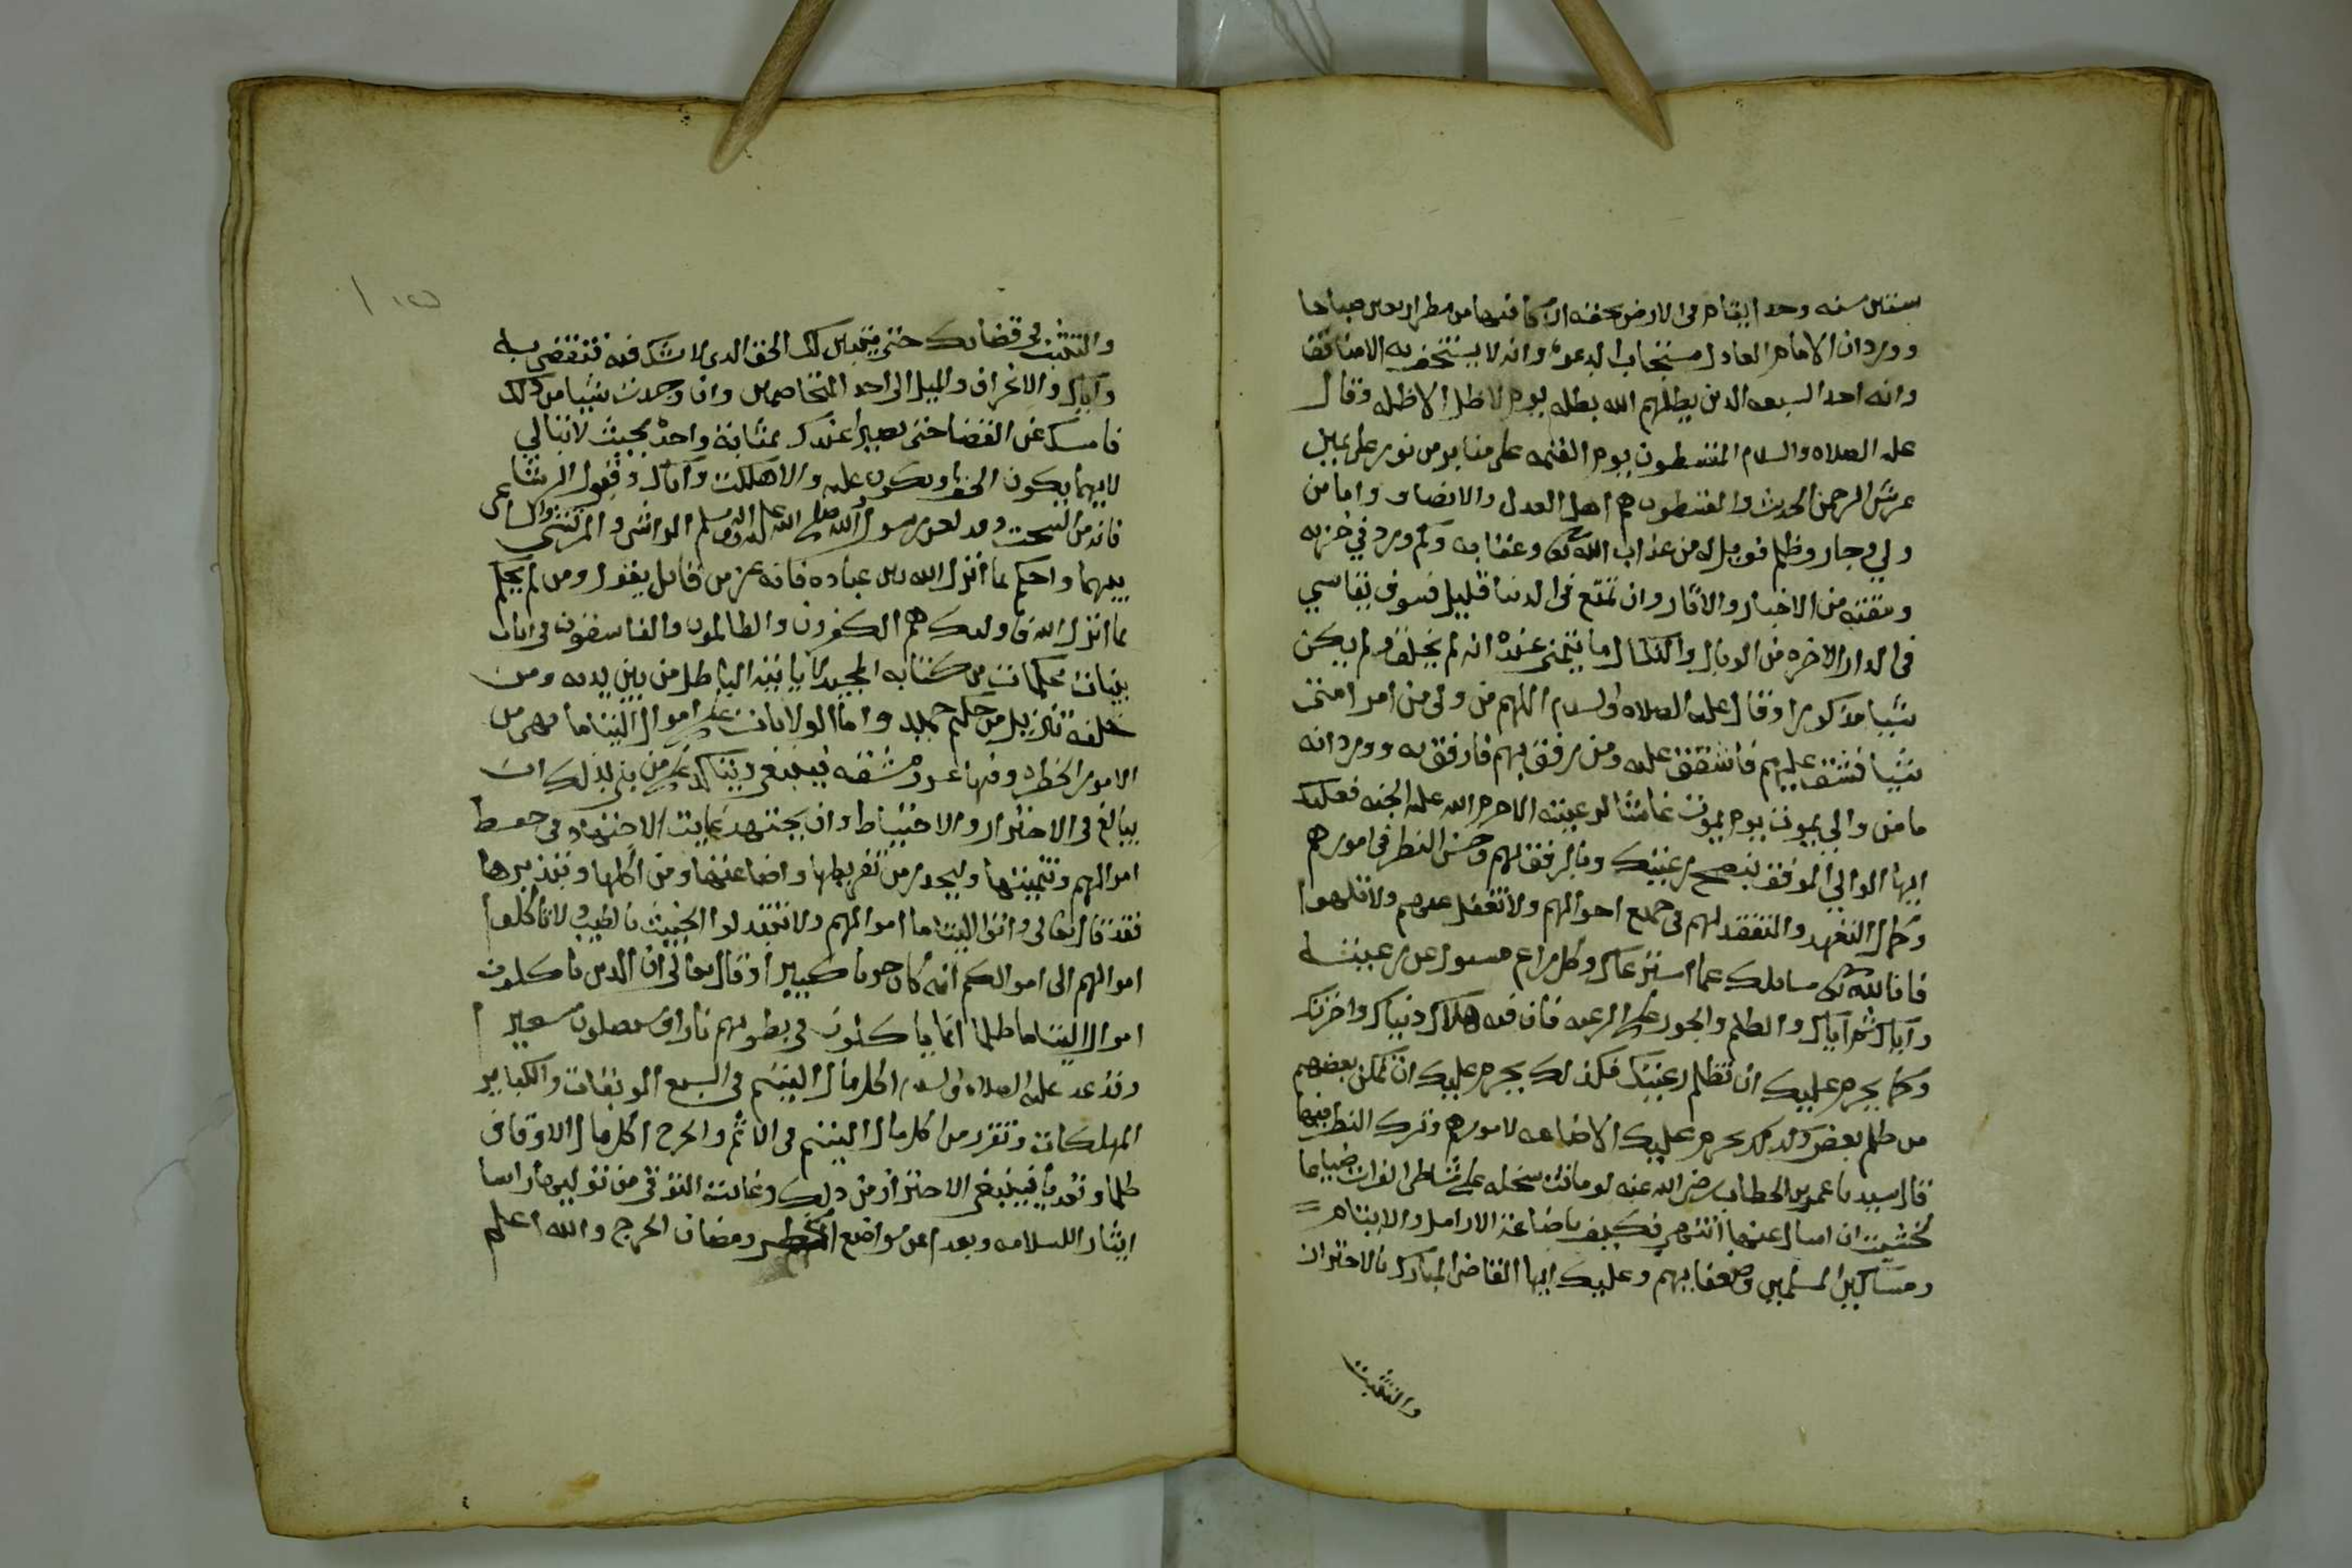 ستين سنه وحد يقام في الارض بحقه ازكا فيها من مطر اربعين صباحا
وورد ان الامام العادل مستجاب الدعوه وانه لا يستخف به الا منافق
وانه احد السبعه الذين يظلهم الله بظله يوم لا ظل الا ظله وقال
عليه الصلاه والسلام المقسطون يوم القيمه على منابر من نور على يمين
عرش الرحمن الحديث والمقسطون هم اهل العدل والانصاف واما من
ولي وجار وظلم فويل له من عذاب الله وعقابه وكم ورد في خزيه
ومقته من الاخبار والاثار وان تمتع في الدنيا قليل فسوف يقاسي
في الدار الاخره من الوبال والنكال ما يتمنى عنده انه لم يخلق ولم يكن
شيا مذكورا وقال عليه الصلاه والسلام اللهم من ولي من امر امتي
شيا فشق عليهم فاشقق عليه ومن رفق بهم فارفق به وورد انه
ما من والي يموت يوم يموت غاشا لرعيته الا حرم الله عليه الجنه فعليك
ايها الوالي الموفق بنصح رعيتك وبالرفق لهم وحسن النظر في امورهم
وكمال التعهد والتفقد لهم في جميع احوالهم ولا تغفل عنهم ولا تلهوا
فان الله تعالى سايلك عما استرعاك وكل راع مسول عن رعيته
واياك ثم اياك والظلم والجور على الرعيه فان فيه هلاك دنياك واخرتك
وكما يحرم عليك ان تظلم رعيتك فكذلك يحرم عليك ان تمكن بعضهم
من ظلم بعض وكذلك يحرم عليك الاضاعه لامورهم وترك النظر فيها
قال سيدنا عمر بن الخطاب رضي الله عنه لو ماتت سخله على شاطي الفرات ضياعا
لخشيت ان اسال عنها انتهى فكيف باضاعة الارامل والايتام
ومساكين المسلمين وضعفايهم وعليك ايها القاضي المبارك بالاحتراز
والتثبت
والتثبت في قضائك حتى يتبين لك الحق الذي لا شك فيه فتقضي به
واياك والانحراف والميل الى احد المتخاصمين وان وجدت شيا من ذلك
فامسك عن القضا حتى يصيرا عندك بمثابة واحده بحيث لا تبالي
لايهما يكون الحق او يكون عليه والا هلكت واياك وقبول الرشا
فانه من السحت وقد لعن رسول الله صلى الله عليه واله وسلم الراشي والمرتشي والساعي
بينهما واحكم بما انزل الله بين عباده فانه عز من قايل يقول ومن لم يحكم
بما انزل الله فاوليك هم الكفرون والظالمون والفاسقون في ايات
بينات محكمات من كتابه المجيد لا ياتيه الباطل من بين يديه ومن
خلفه تنزيل من حكيم حميد واما الولايات على اموال اليتاما فهي من
الامور الخطره وفيها عسر ومشقه فينبغي ويتاكد على من بلي بذلك ان
يبالغ في الاحتراز والاحتياط وان يجتهد غايت الاجتهاد في حفظ
اموالهم وتنميتها وليحذر من تفريطها واضاعتها ومن اكلها وتبذيرها
فقد قال تعالى واتوا اليتاما اموالهم ولا تتبدلوا الخبيث بالطيب ولا تاكلوا
اموالهم الى اموالكم انه كان حوبا كبيرا وقال تعالى ان الذين ياكلون
اموال اليتاما ظلما انما ياكلون في بطونهم نارا وسيصلون سعيرا
وقد عد عليه الصلاه والسلام اكل مال اليتيم في السبع الموبقات والكباير
المهلكات وتقرب من اكل مال اليتيم في الاثم والحرج اكل مال الاوقاف
ظلما وتعديا فينبغي الاحتراز من ذلك وغايت التوقي من توليها راسا
ايثار اللسلامه وبعدا عن مواضع الخطر ومضان الحرج والله اعلم